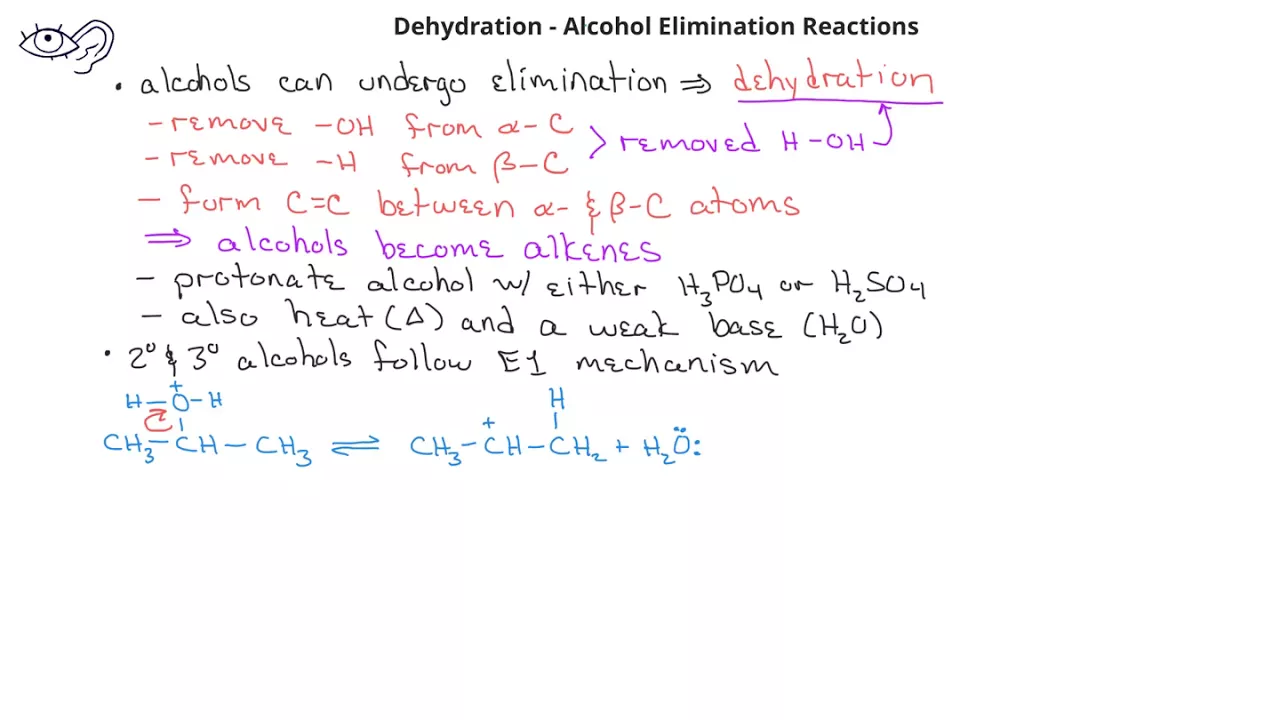 Dehydration - Alcohol Elimination Reactions
• alcohols can undergo elimination ⇒ dehydration
- remove -OH from α-C
> removed H-OH
- remove -H from β-C
- form C=C between α- & β-C atoms
⇒ alcohols become alkenes
- protonate alcohol w/ either H₃PO₄ or H₂SO₄
- also heat (Δ) and a weak base (H₂O)
• 2° & 3° alcohols follow E1 mechanism
+
H-O-H H
+
CH₃-CH-CH₃ ⇌ CH₃-CH-CH₂ + H₂O: